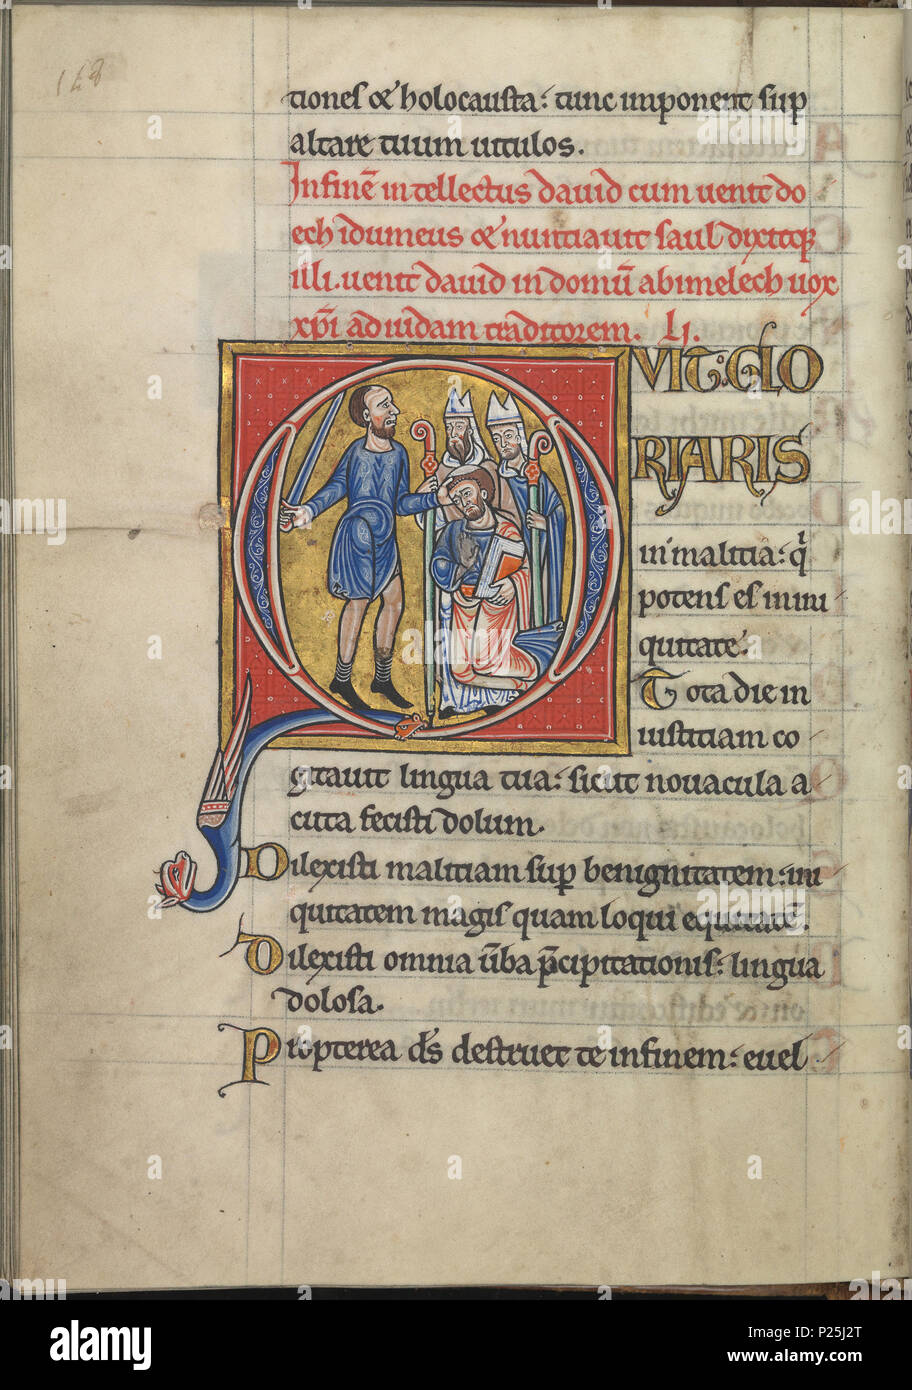 148
tiones & holocausta: tunc inponent sup
altare tuum uitulos.
Infinē intellectus dauid cum uenit do
ech idumeus & nuntiauit saul dixitq;
illi. uenit dauid in domū abimelech uox
xp̄i ad iudam traditorem. Lj.
QVIT: GLO
RIARIS
in malitia: q̇
potens es in ini
quitate.
Tota die in
iustitiam co
gitauit lingua tua: sicut nouacula a
cuta fecisti dolum.
Dilexisti malitiam sup benignitatem: ini
quitatem magis quam loqui equitatē.
Dilexisti omnia ūba p̄cipitationis: lingua
dolosa.
Propterea ds̄ destruet te infinem: euel
alamy
Image ID: P25J2T
www.alamy.com